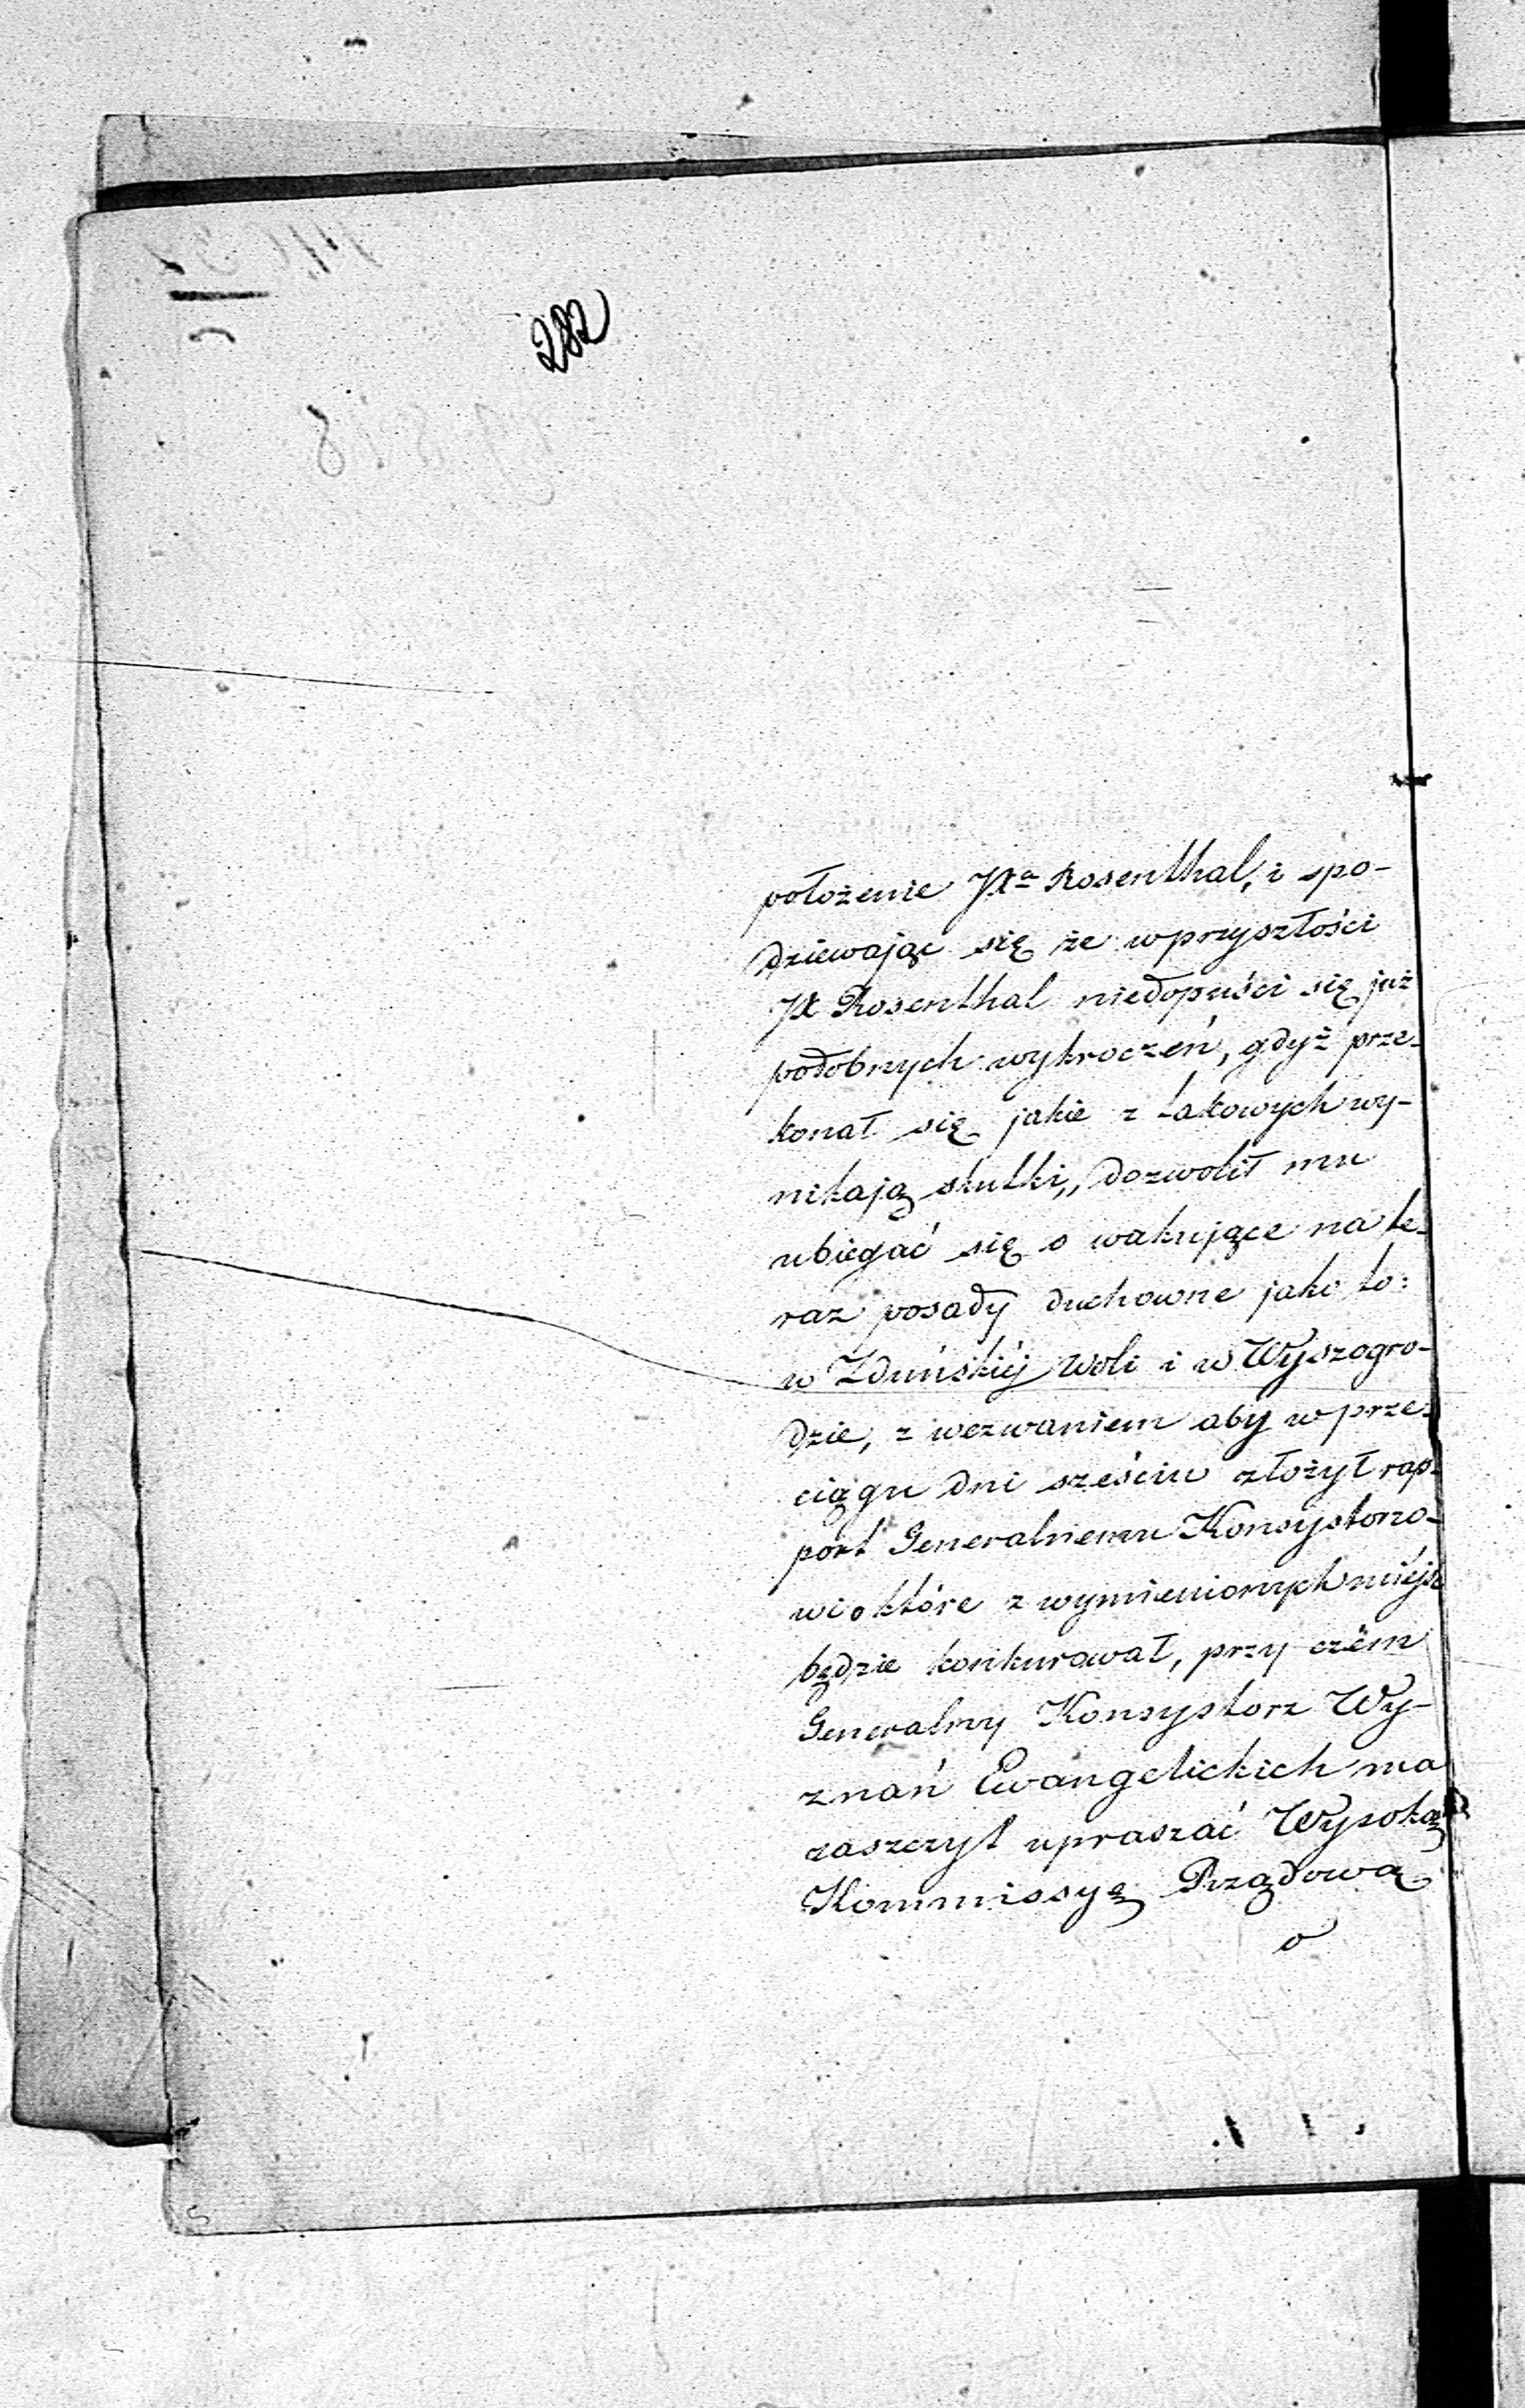 282
położenie JXa Rosenthal, i spo-
dziewając się że wprzyszłości
JX Rosenthal niedopuści się już
podobnych wykroczeń, gdyż prze-
konał się jakie z takowych wy-
nikają skutki,, dozwolił mu
ubiegać się o wakujące na te-
raz posady duchowne jako to:
w Zduńskiéj Woli i w Wyszogro-
dzie, z wezwaniem aby wprze-
ciągu dni sześciu złożył rap-
port Generalnemu Konsystorzo-
wi o które z wymienionych miéjsc
będzie konkurował, przy czém
Generalny Konsystorz Wy-
znań Ewangelickich ma
zaszczyt upraszać Wysoką
Kommissyą Rządową
o